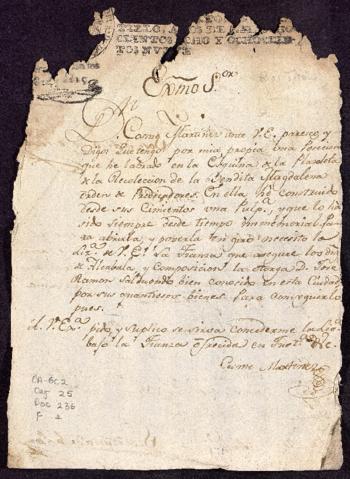 SELLO, A OS DE M
CIENTOS OCHO Y OCHOCIEN
TOS NVEVE
Exmo S.or
Cosme Martinez ante V.E. parezco y
Digo: Que tengo por mia propia una Posecion
que he labrado en la Esquina de la Plazoleta
de la Recoleccion de la Bendita Magdalena
orden de Predicadores. En ella he construido
desde sus Cimientos una Pulp.a y que lo ha
sido siempre desde tiempo immemorial. Pa
ra abrirla, y ponerla en giro necesito la
liz.a de V.E. La Fianza que asegure los
de Alcabala y Composicion la otorga D. José
Ramon bien conocido en esta Ciudad
por sus quantiosos bienes. Para conseguirlo
pues.
A V.E. pido, y suplico se sirva concederme la Liz.a
bajo la Fianza ofrecida en Just.a &c.
Cosme Martinez
CA-GC2
Caj 25
Doc 236
F 1